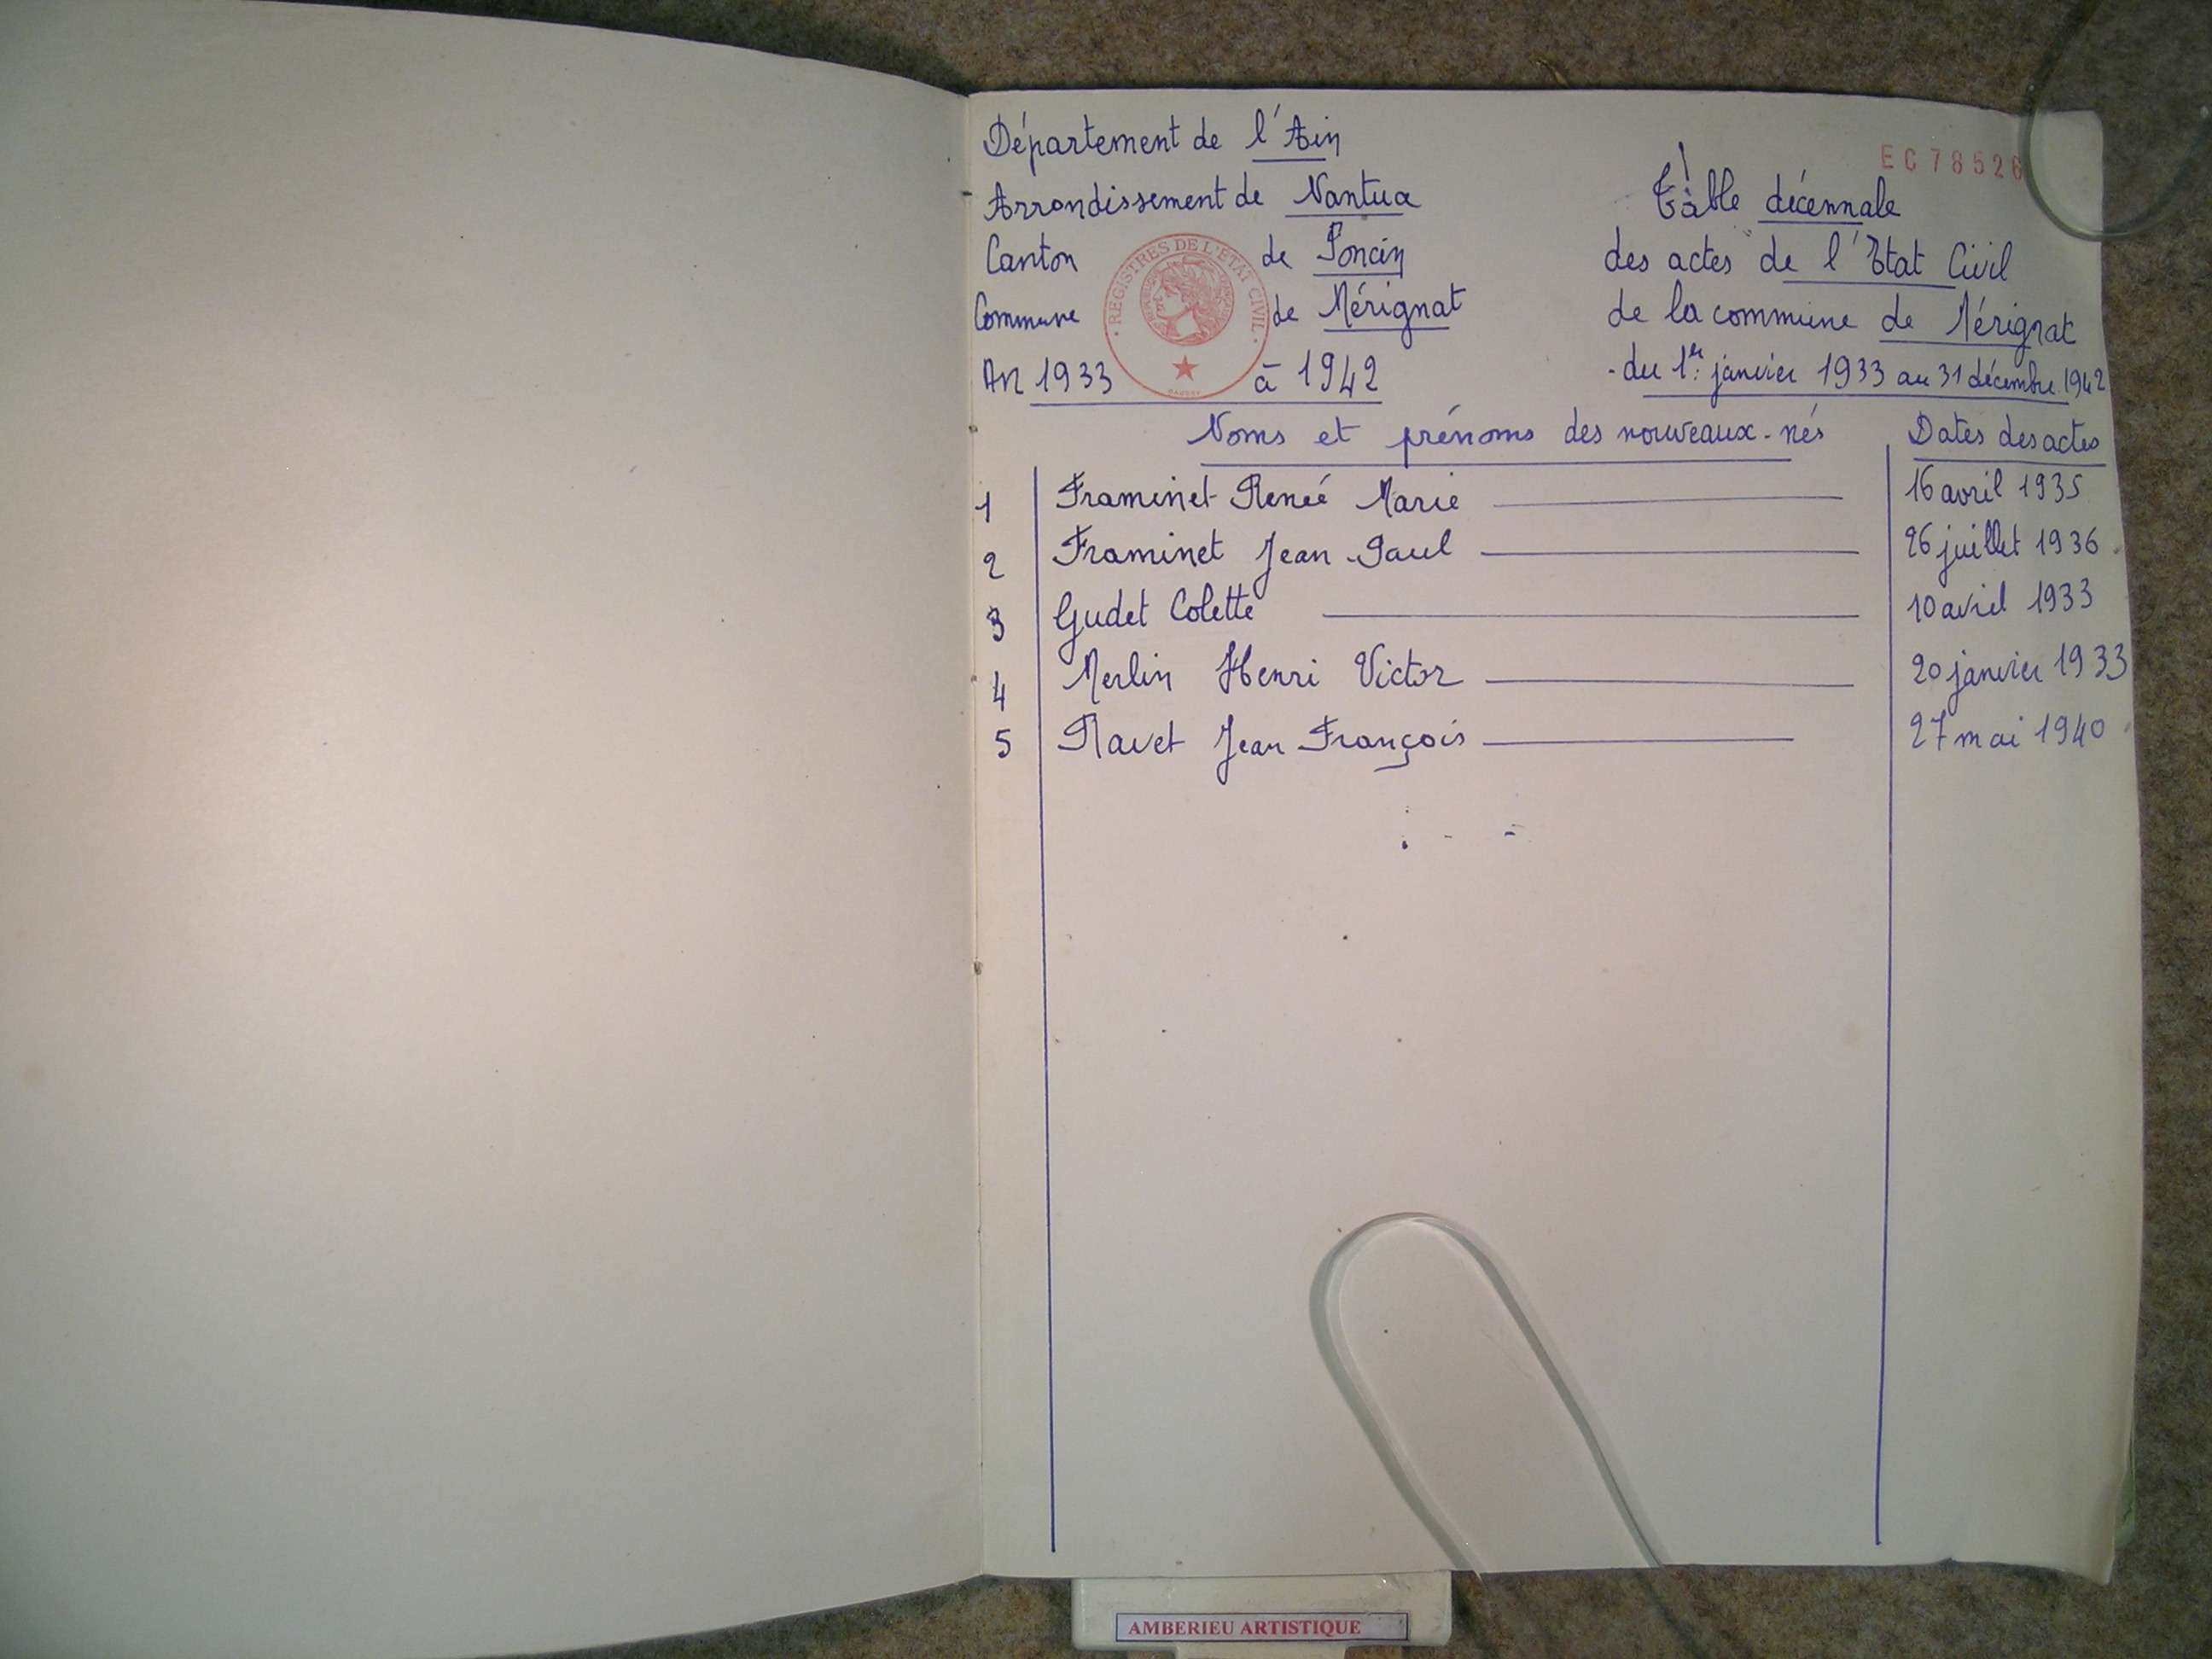 Département de l'Ain
Arrondissement de Nantua
Canton de Poncin
Commune de Mérignat
An 1933 à 1942
REGISTRES DE L'ÉTAT CIVIL
EC78526
Table décennale
des actes de l'Etat Civil
de la commune de Mérignat
du 1er janvier 1933 au 31 décembre 1942
Noms et prénoms des nouveaux-nés Dates des actes
1 Framinet Renée Marie 16 avril 1935
2 Framinet Jean Paul 26 juillet 1936
3 Gudet Colette 10 avril 1933
4 Merlin Henri Victor 20 janvier 1933
5 Ravet Jean François 27 mai 1940
AMBERIEU ARTISTIQUE